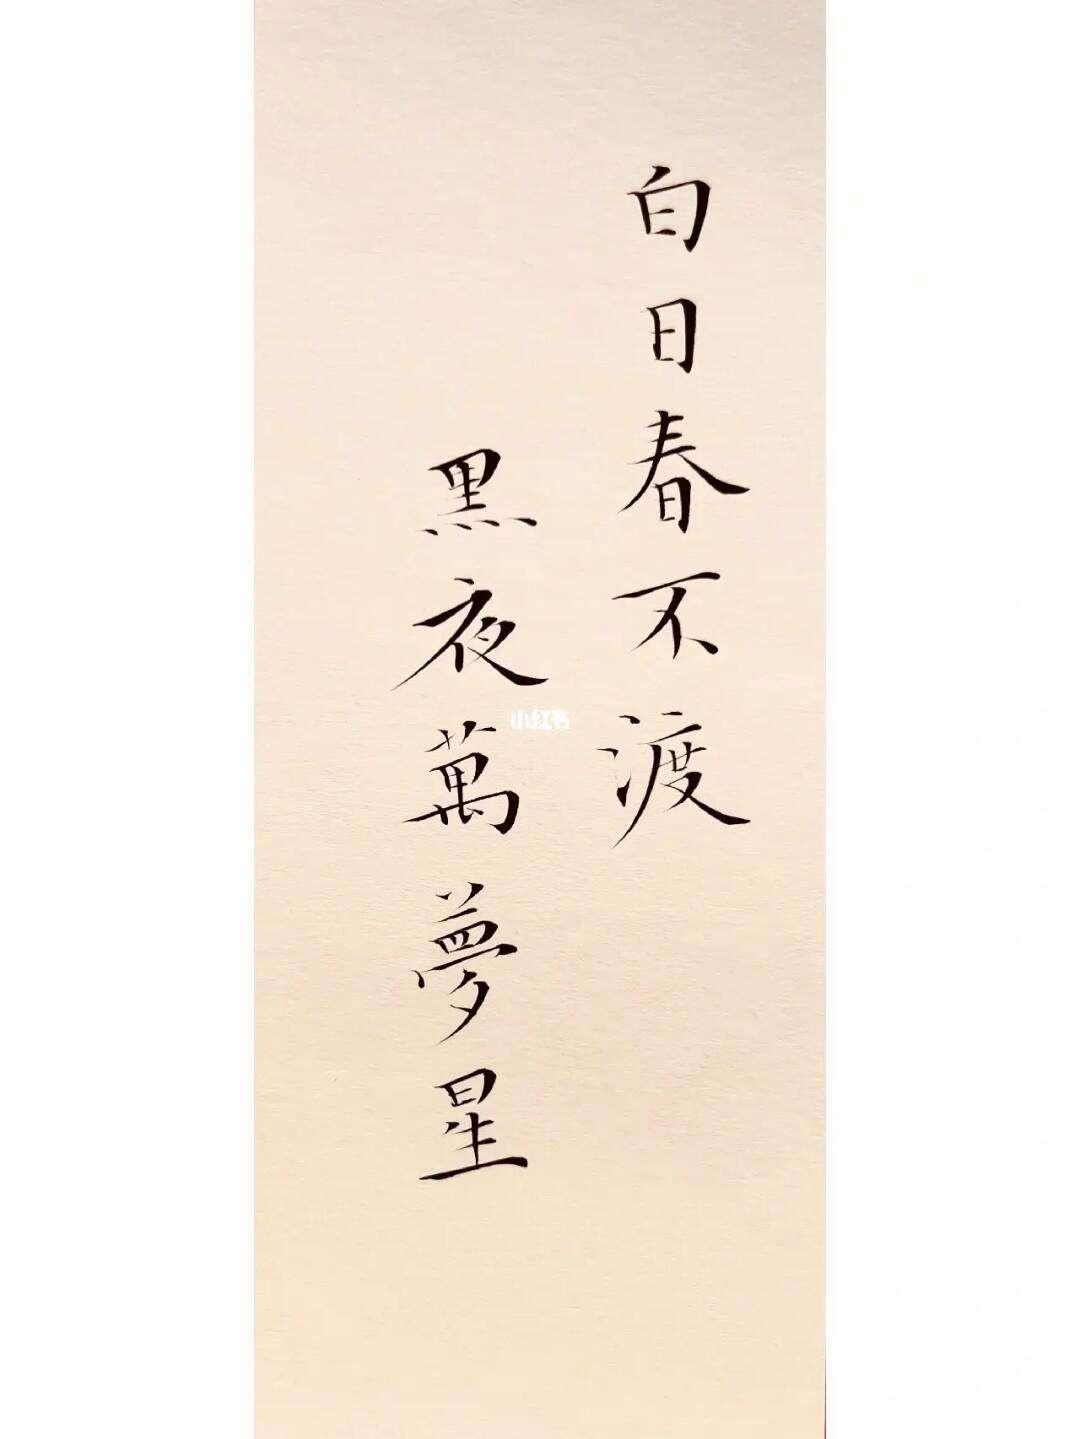 白日春不渡
黑夜萬夢星
小红书